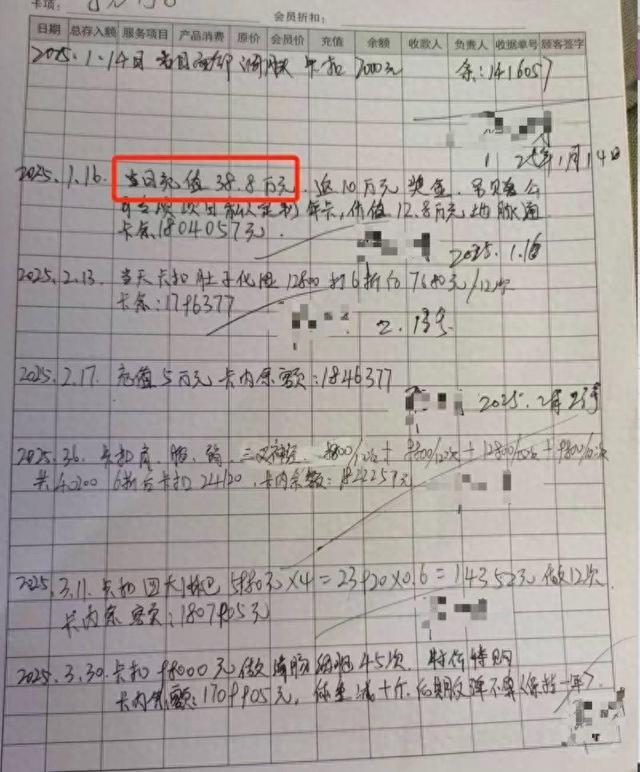 卡项:
会员折扣:
日期 总存入额 服务项目 产品消费 原价 会员价 充值 余额 收款人 负责人 收据单号 顾客签字
2025.1.14日 卡扣 7000元 余:1416057
25年1月14日
2025.1.16. 当日充值38.8万元. 返10万元奖金.
年卡,价值12.8万元
卡余1804057元.
2025.1.16
2025.2.13. 当天卡扣肚子化脂 12800打6折后7680元/12次
卡余:1796377
2.13号
2025.2.17. 充值5万元卡内余额:1846377
2025.2月23号
2025.3.6. 卡扣肩、腿、三叉神经. 9800/12次+12800/12次+9800/12次
共40200 6折后卡扣24120,卡内余额:1822257元
2025.3.11. 卡扣四大淋巴 5980元×4=23920×0.6=14352元 做12次
卡内余额:1807905元
2025.3.30. 卡扣98000元做 45次. 特价特购
卡内余额:1709905元, 体重减十斤. 后期反弹不算(保持一年).